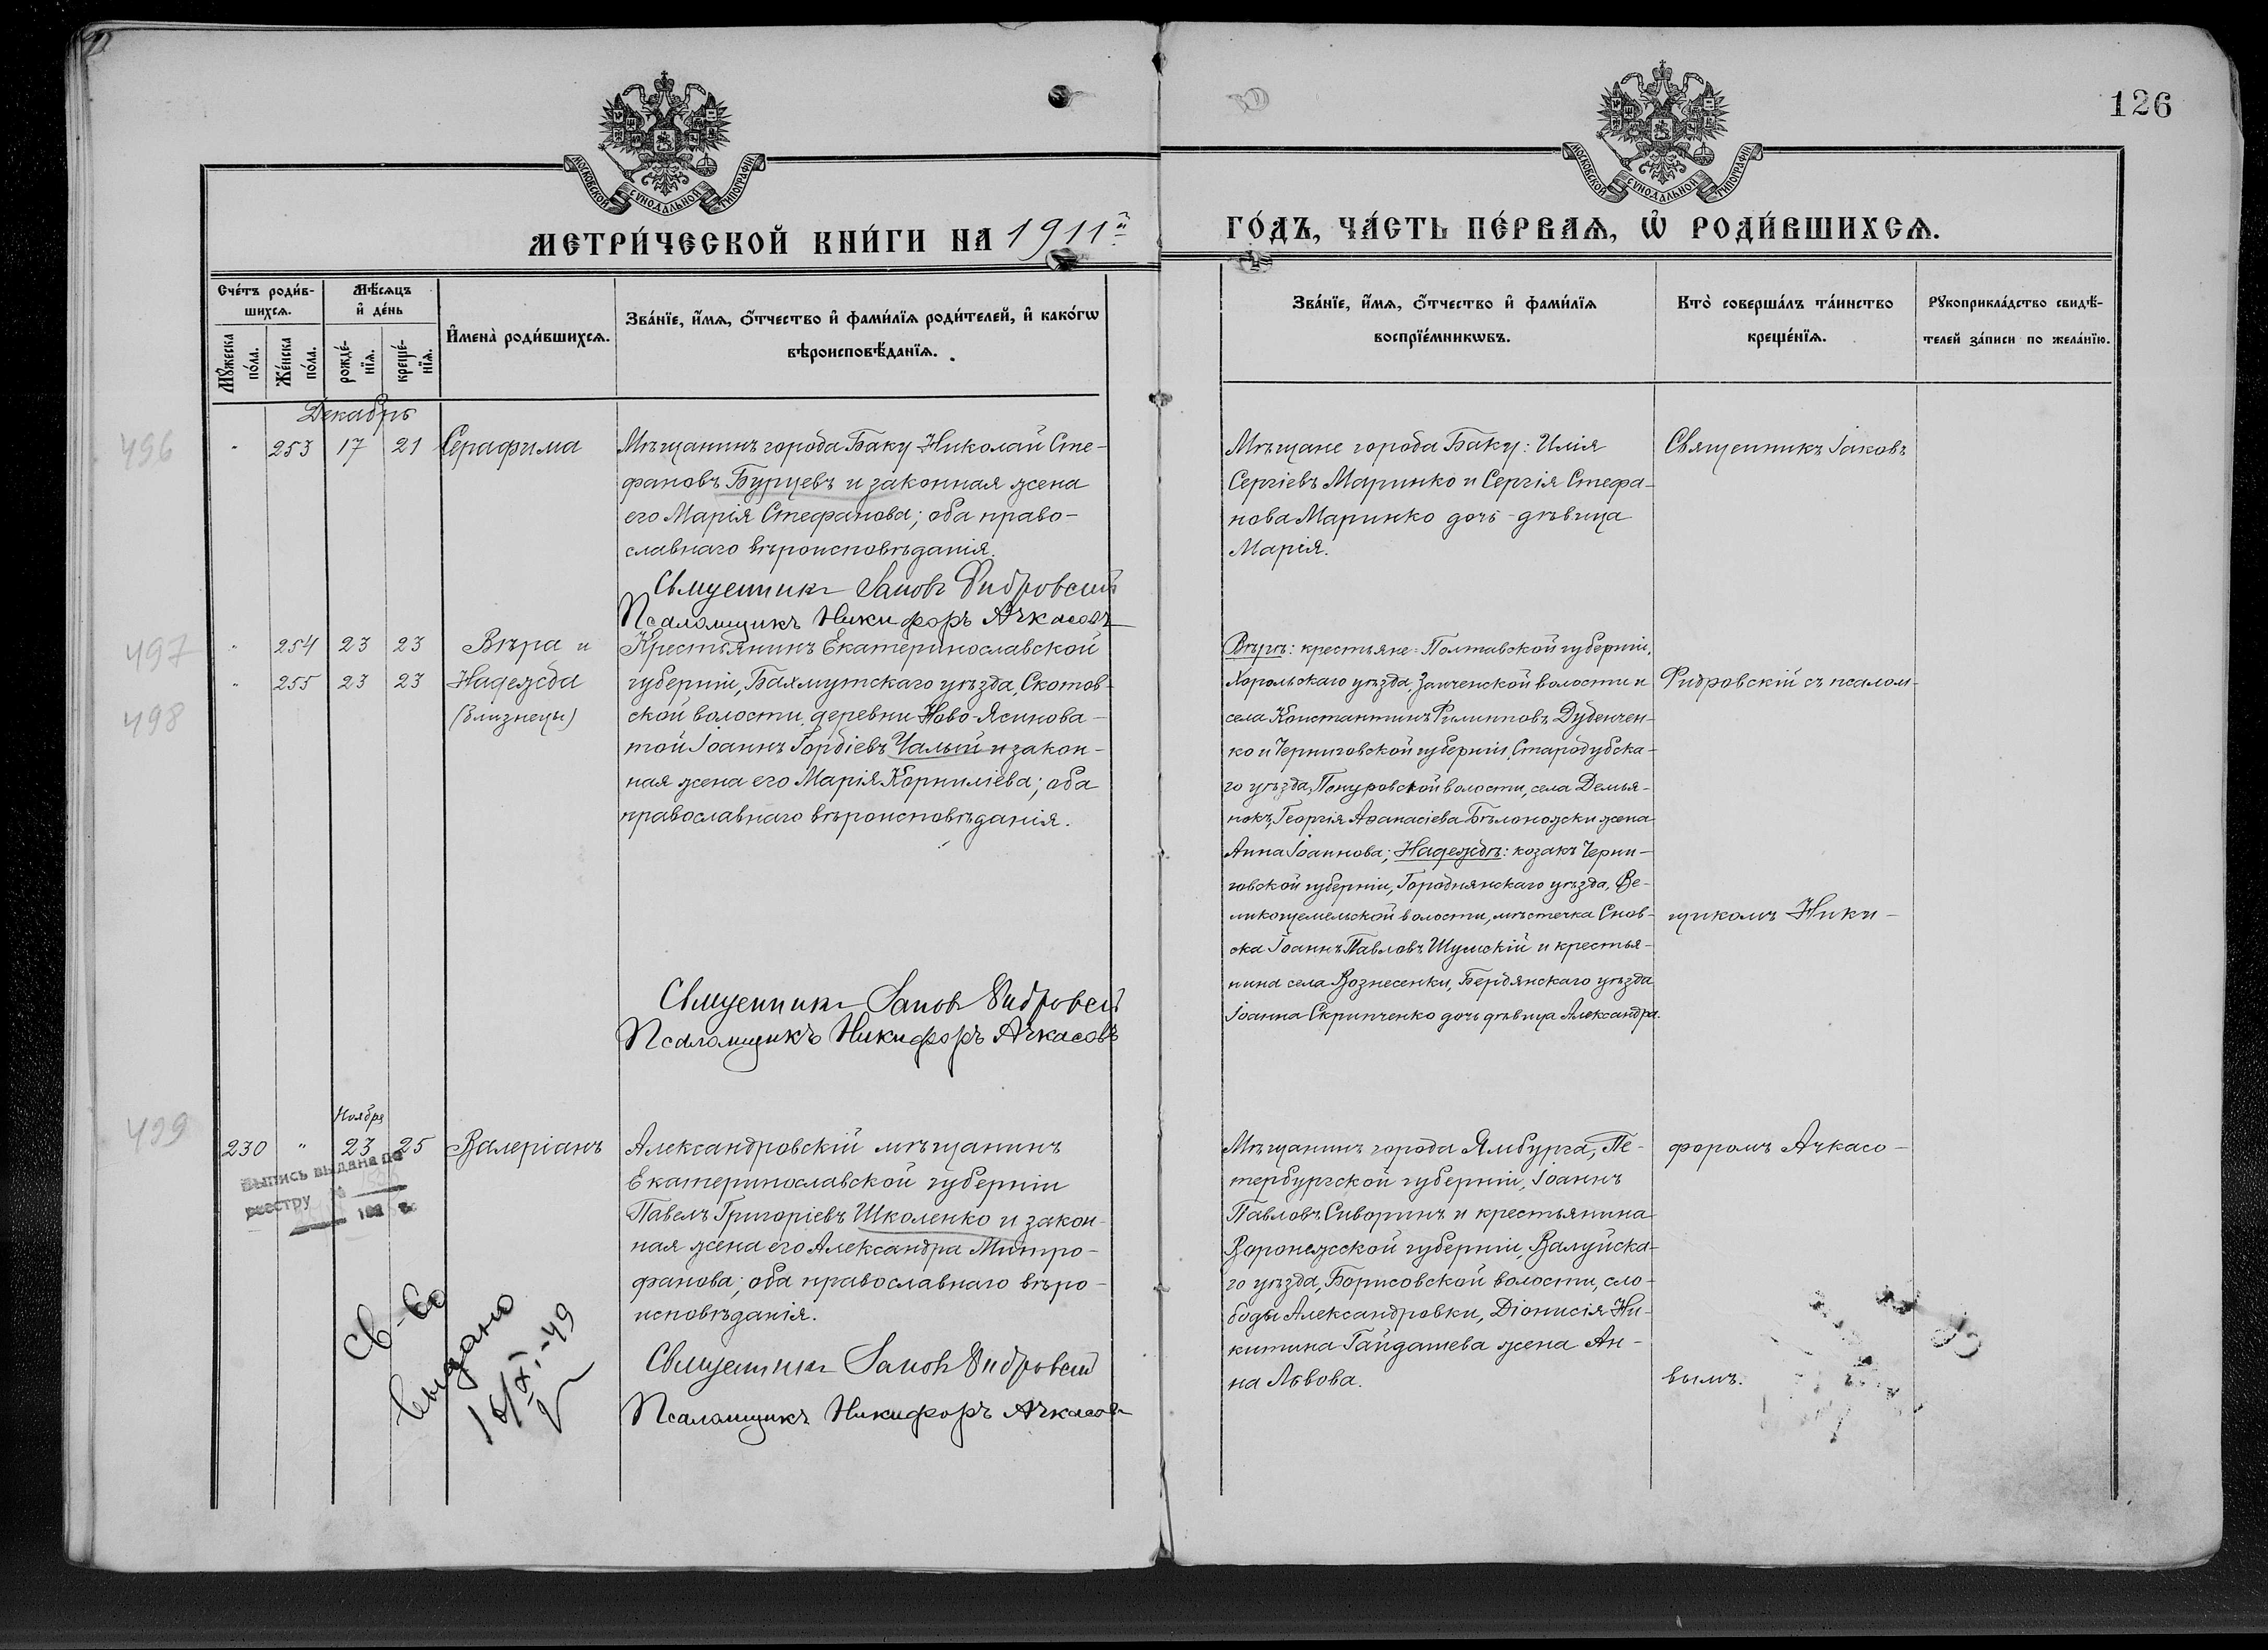 126
МОСКОВСКОЙ СѴНОДАЛЬНОЙ ТИПОГРАФІИ
МОСКОВСКОЙ СѴНОДАЛЬНОЙ ТИПОГРАФІИ
МЕТРИ́ЧЕСКОЙ КНИ́ГИ НА 1911й
ГО́ДЪ, ЧА́СТЬ ПЕ́РВАѦ, Ѡ҆ РОДИ́ВШИХСѦ.
Сче́тъ роди́в-
шихсѧ.
Мꙋ́жеска
по́ла.
Же́нска
по́ла.
Мѣ́сѧцъ
и҆ де́нь
рожде́-
нїѧ.
креще́-
нїѧ.
И҆мена̀ роди́вшихсѧ.
Зва́нїе, и҆́мѧ, ѻ҆́тчество и҆ фами́лїѧ роди́телей, и҆ како́гѡ
вѣроисповѣ́данїѧ.
Зва́нїе, и҆́мѧ, ѻ҆́тчество и҆ фами́лїѧ
воспрїе́мникѡвъ.
Кто̀ соверша́лъ та́инство
креще́нїѧ.
Рꙋкоприкла́дство свидѣ́-
телей за́писи по жела́нїю.
Декабрь
496
" 253 17 21 Серафима
Мѣщанинъ города Баку Николай Сте-
фановъ Бурцевъ и законная жена
его Марія Стефанова; оба право-
славнаго вѣроисповѣданія.
Священникъ Іаковъ Фидровскій
Псаломщикъ Никифоръ Ачкасовъ
Мѣщане города Баку: Илія
Сергіевъ Маринко и Сергія Стефа-
нова Маринко дочь-дѣвица
Марія.
Священникъ Іаковъ
497
" 254 23 23 Вѣра и
" 255 23 23 Надежда
498
(Близнецы)
Крестьянинъ Екатеринославской
губерніи, Бахмутскаго уѣзда, Скотов-
ской волости, деревни Ново-Ясинова-
той Іоаннъ Гордіевъ Чалый и закон-
ная жена его Марія Корниліева; оба
православнаго вѣроисповѣданія.
Священникъ Іаковъ Фидровскій
Псаломщикъ Никифоръ Ачкасовъ
Вѣрѣ: крестьяне Полтавской губерніи,
Хорольскаго уѣзда, волости и
села Константинъ Филипповъ Дубенчен-
ко и Черниговской губерніи, Стародубска-
го уѣзда, Понуровской волости, села Демья-
нокъ, Георгія Аѳанасіева Бѣлоножски жена
Анна Іоаннова; Надеждѣ: козакъ Черни-
говской губерніи, Городнянскаго уѣзда, Ве-
ликощемельской волости, мѣстечка Снов-
ска Іоаннъ Павловъ Шумскій и крестья-
нина села Вознесенки, Бердянскаго уѣзда
Іоанна Скрипченко дочь дѣвица Александра.
Фидровскій съ псалом-
щикомъ Ники-
499
Ноября
230 " 23 25 Валеріанъ
Выпись выдана по
реестру №
Св-во
выдано
16/XI-49
Александровскій мѣщанинъ
Екатеринославской губерніи
Павелъ Григоріевъ Школенко и закон-
ная жена его Александра Митро-
фанова; оба православнаго вѣро-
исповѣданія.
Священникъ Іаковъ Фидровскій
Псаломщикъ Никифоръ Ачкасовъ
Мѣщанинъ города Ямбурга, Пе-
тербургской губерніи, Іоаннъ
Павловъ Сиворинъ и крестьянина
Воронежской губерніи, Валуйска-
го уѣзда, Борисовской волости, сло-
боды Александровки, Діонисія Ни-
китина Гайдашева жена Ан-
на Львова.
форомъ Ачкасо-
вымъ.